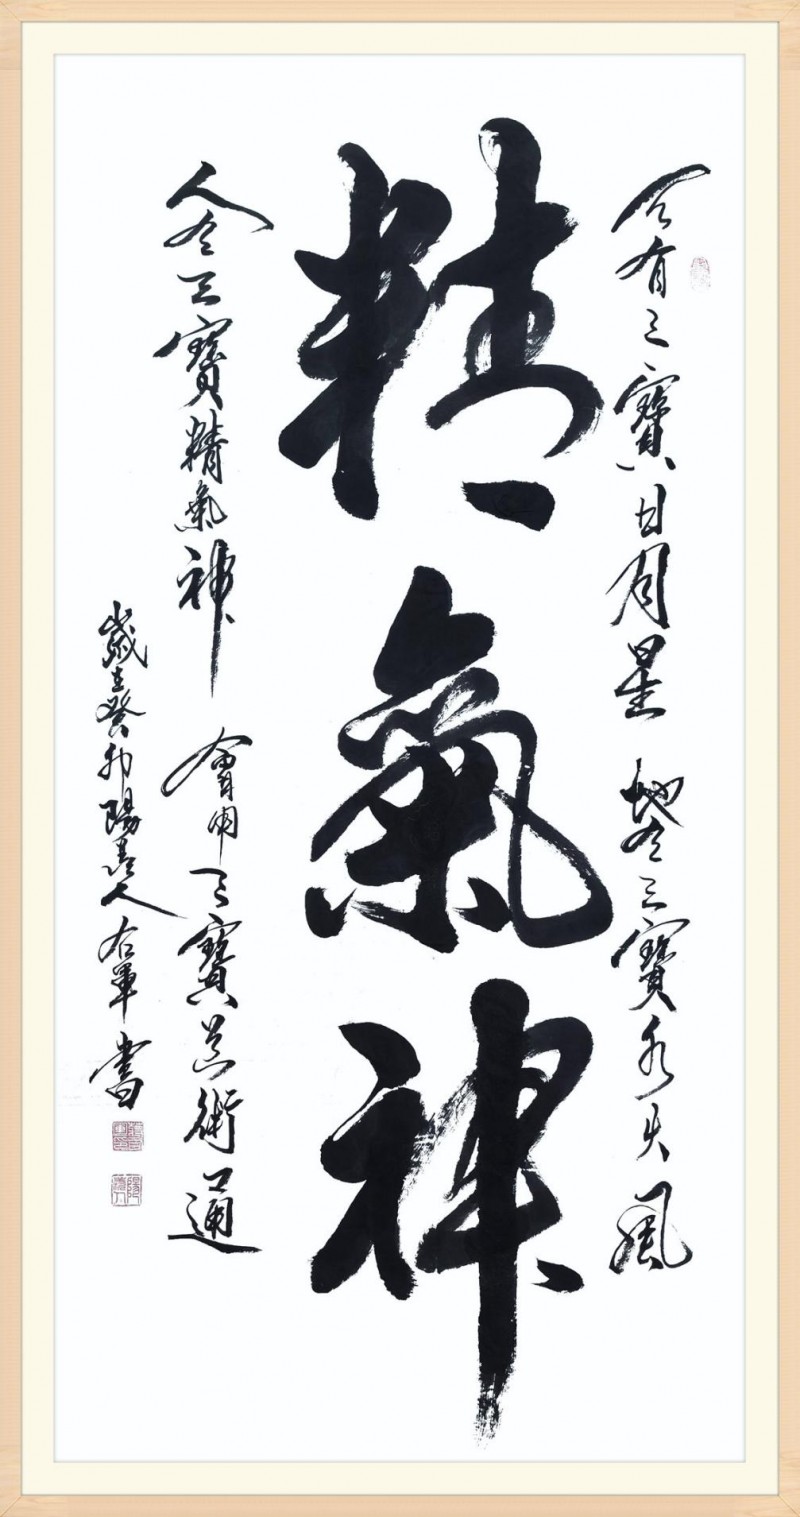 天有三寶日月星 地有三寶水火風
精氣神
人有三寶精氣神 會用三寶術通
歲在癸卯陽人右軍書